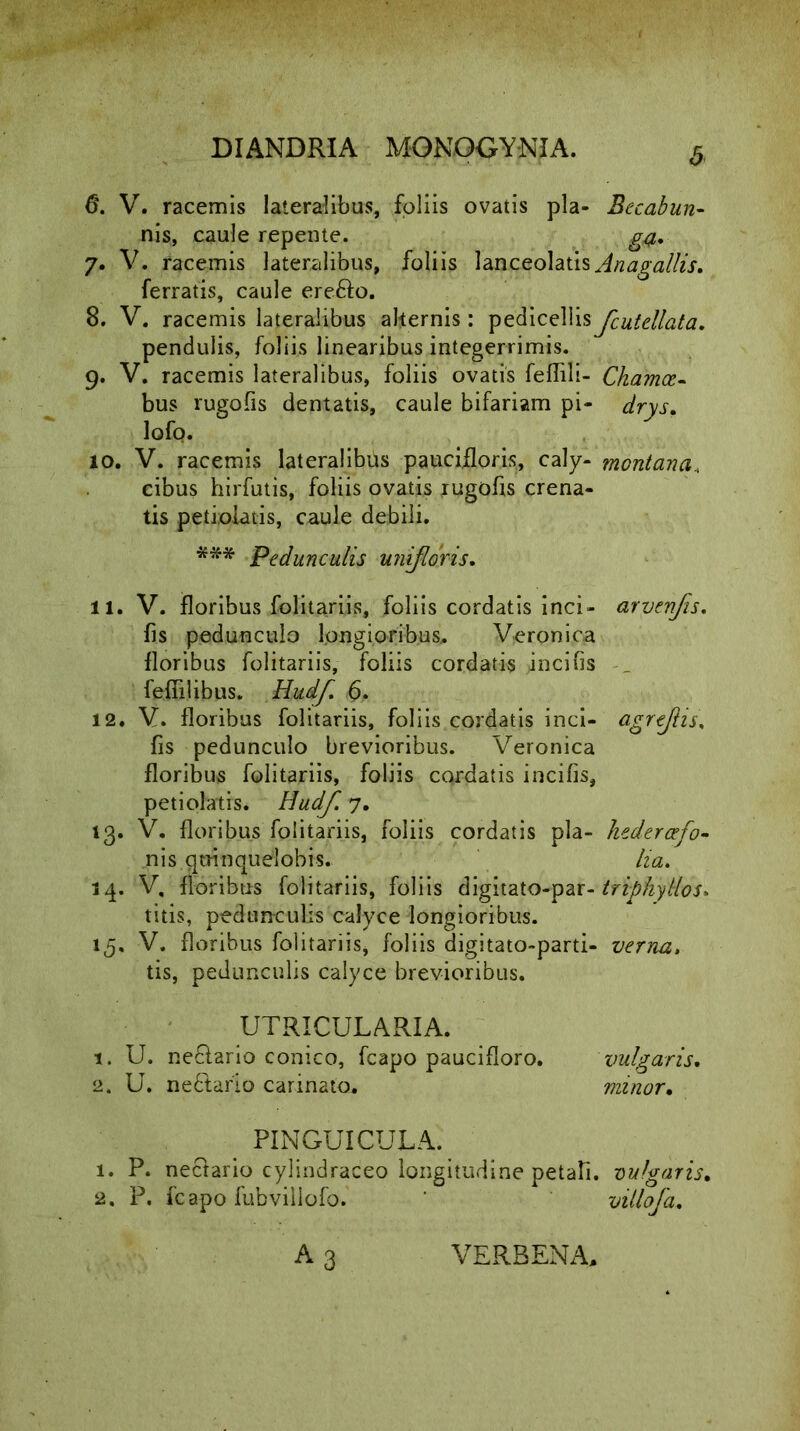 DIANDRIA MONOGYNIA. 5
6. V. racemis lateralibus, foliis ovatis pla- Becabun-
nis, caule repente. ga.
7. V. racemis lateralibus, foliis lanceolatis Anagallis.
ſerratis, caule erecto.
8. V. racemis lateralibus alternis: pedicellis ſcutellata.
pendulis, foliis linearibus integerrimis.
9. V. racemis lateralibus, foliis ovatis ſeſſili- Chamœ-
bus rugoſis dentatis, caule bifariam pi- drys.
loſo.
10. V. racemis lateralibus paucifloris, caly- montana.
cibus hirſutis, foliis ovatis rugoſis crena-
tis petiolatis, caule debili.
*** Pedunculis unifloris.
11. V. floribus ſolitariis, foliis cordatis inci- arvenſis.
ſis pedunculo longioribus. Veronica
floribus ſolitariis, foliis cordatis inciſis
ſeſſilibus. Hudſ. 6.
12. V. floribus ſolitariis, foliis cordatis inci- agreſtis.
ſis pedunculo brevioribus. Veronica
floribus ſolitariis, foliis cordatis inciſis,
petiolatis. Hudſ. 7.
13. V. floribus ſolitariis, foliis cordatis pla- hederæfo-
nis quinquelobis. lia.
14. V. floribus ſolitariis, foliis digitato-par- triphyllos.
titis, pedunculis calyce longioribus.
15. V. floribus ſolitariis, foliis digitato-parti- verna.
tis, pedunculis calyce brevioribus.
UTRICULARIA.
1. U. nectario conico, ſcapo paucifloro. vulgaris.
2. U. nectario carinato. minor.
PINGUICULA.
1. P. nectario cylindraceo longitudine petali. vulgaris.
2. P. ſcapo ſubvilloſo. villoſa.
A 3 VERBENA.